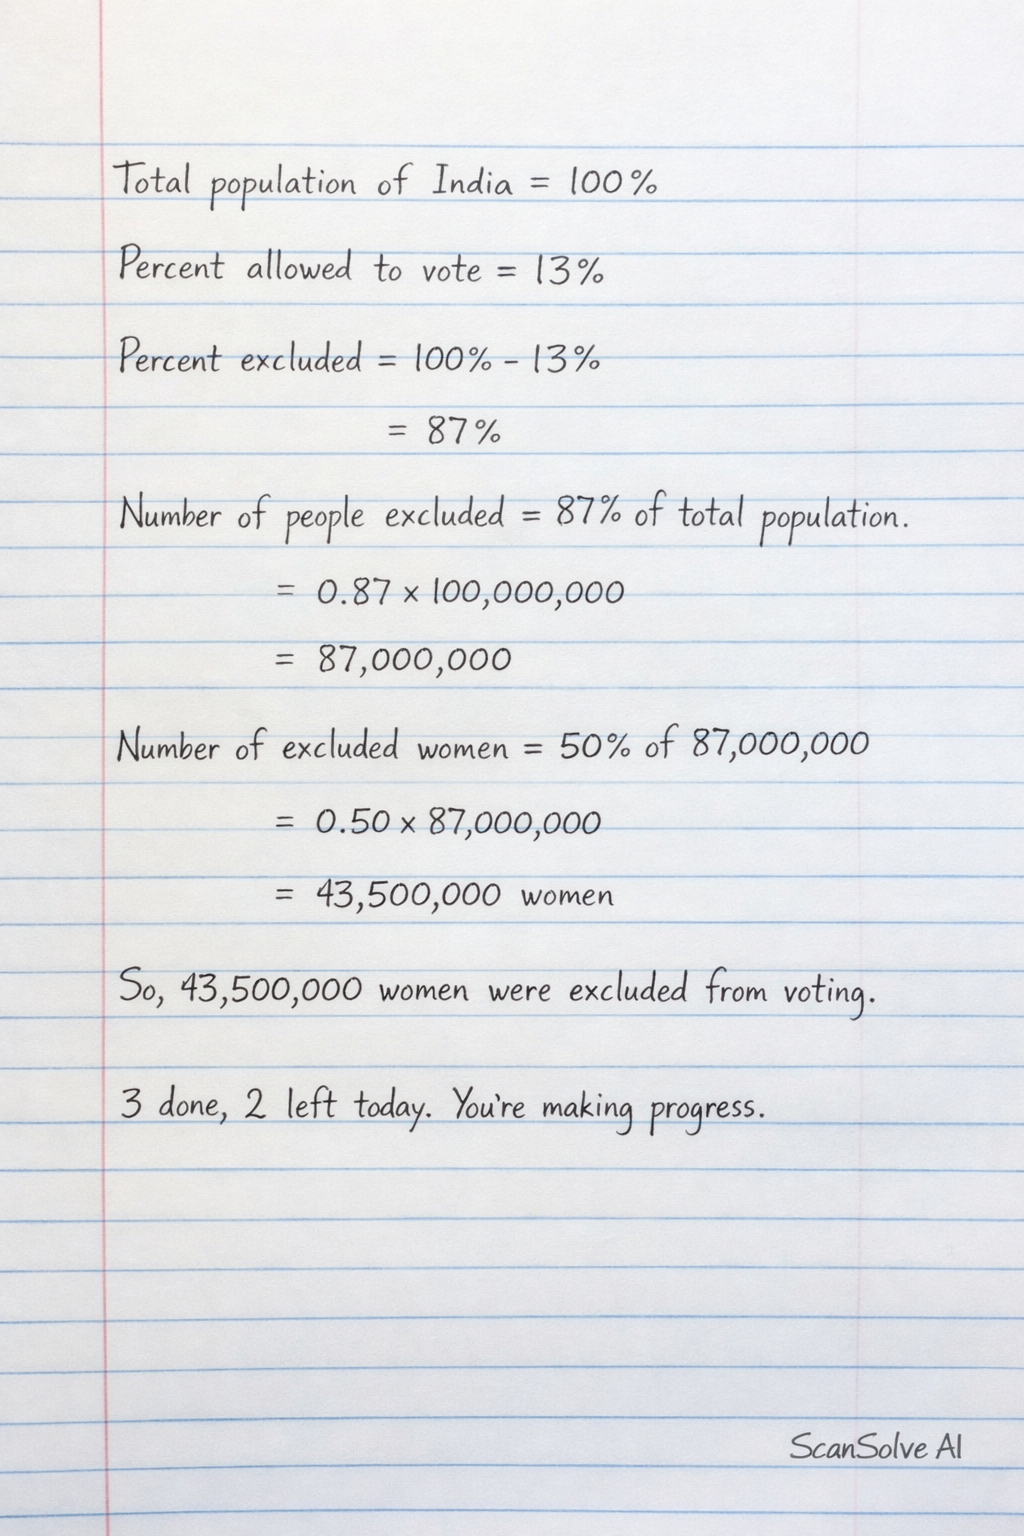 Total population of India = 100%
Percent allowed to vote = 13%
Percent excluded = 100% - 13%
= 87%
Number of people excluded = 87% of total population.
= 0.87 × 100,000,000
= 87,000,000
Number of excluded women = 50% of 87,000,000
= 0.50 × 87,000,000
= 43,500,000 women
So, 43,500,000 women were excluded from voting.
3 done, 2 left today. You're making progress.
ScanSolve AI